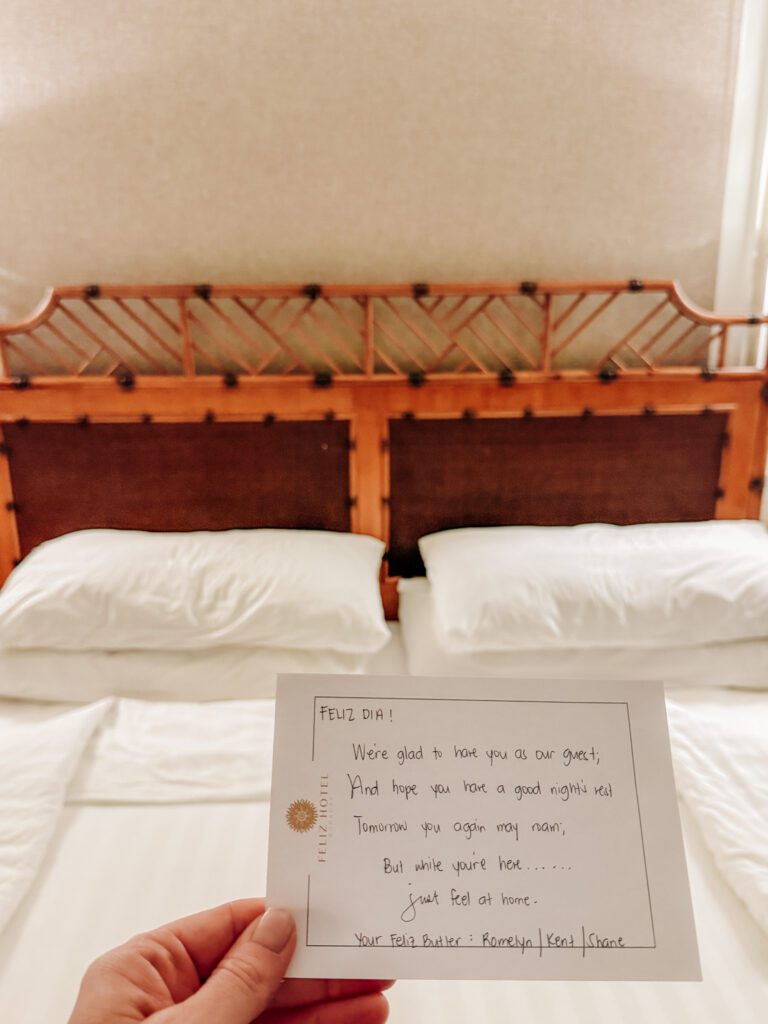 FELIZ DIA!
We're glad to have you as our guest;
And hope you have a good night's rest
Tomorrow you again may roam;
But while you're here......
just feel at home.
Your Feliz Butler : Romelyn | Kent | Shane
FELIZ HOTEL